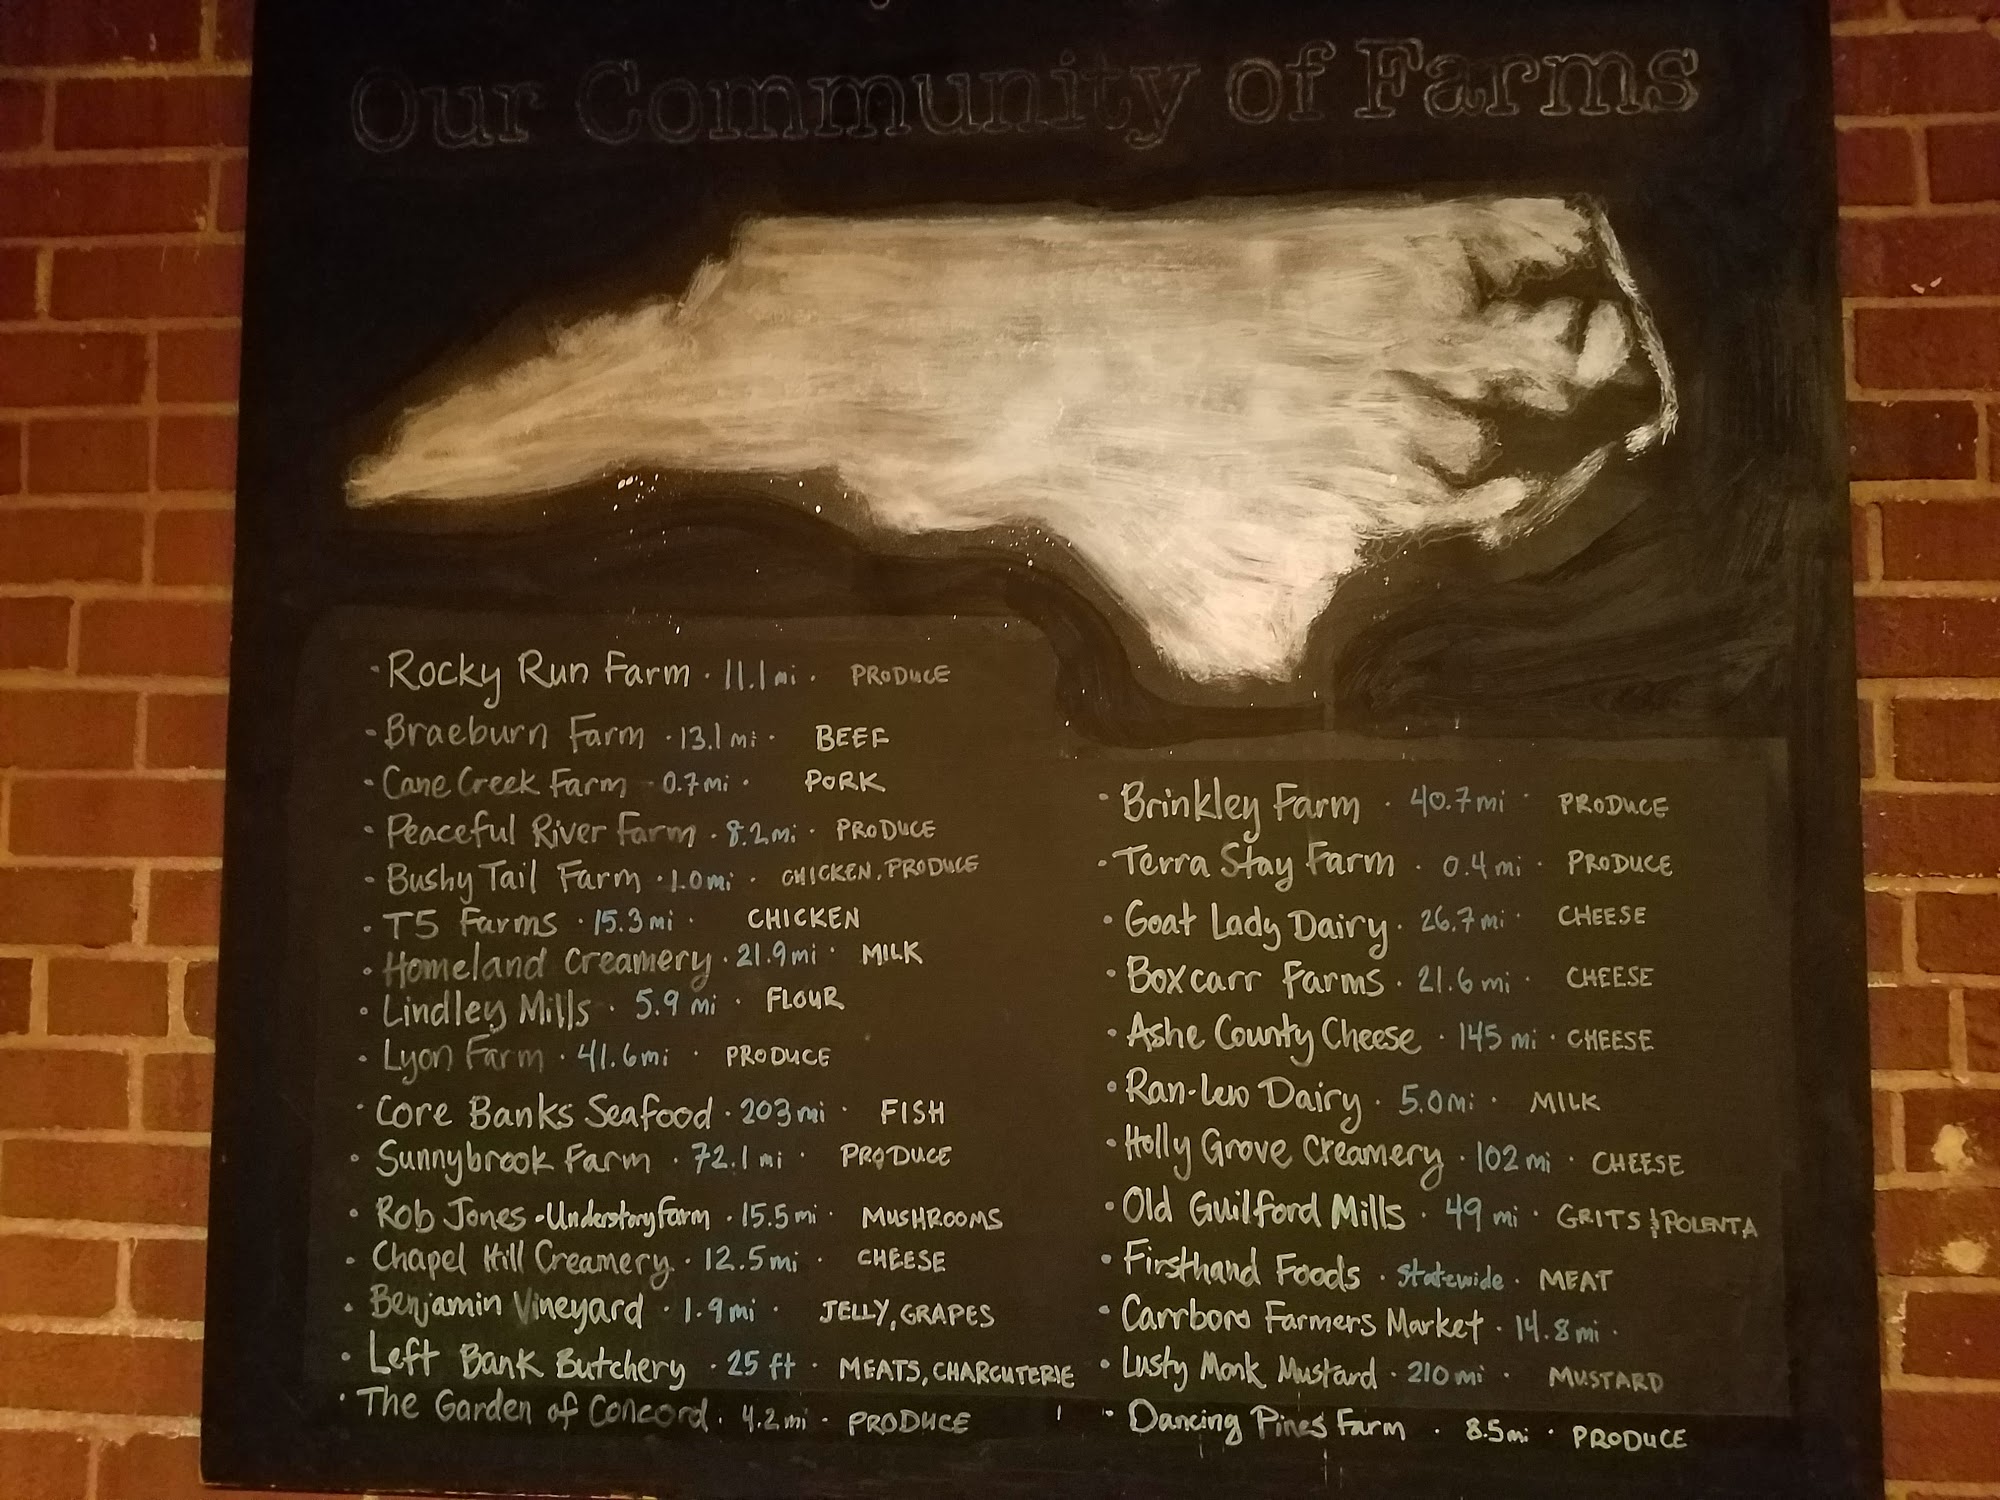 Our Community of Farms
· Rocky Run Farm · 11.1 mi · PRODUCE
· Braeburn Farm · 13.1 mi · BEEF
· Cane Creek Farm · 0.7 mi · PORK
· Peaceful River Farm · 8.2 mi · PRODUCE
· Bushy Tail Farm · 1.0 mi · CHICKEN, PRODUCE
· T5 Farms · 15.3 mi · CHICKEN
· Homeland Creamery · 21.9 mi · MILK
· Lindley Mills · 5.9 mi · FLOUR
· Lyon Farm · 41.6 mi · PRODUCE
· Core Banks Seafood · 203 mi · FISH
· Sunnybrook Farm · 72.1 mi · PRODUCE
· Rob Jones - Understory Farm · 15.5 mi · MUSHROOMS
· Chapel Hill Creamery · 12.5 mi · CHEESE
· Benjamin Vineyard · 1.9 mi · JELLY, GRAPES
· Left Bank Butchery · 25 ft · MEATS, CHARCUTERIE
· The Garden of Concord · 4.2 mi · PRODUCE
· Brinkley Farm · 40.7 mi · PRODUCE
· Terra Stay Farm · 0.4 mi · PRODUCE
· Goat Lady Dairy · 26.7 mi · CHEESE
· Boxcarr Farms · 21.6 mi · CHEESE
· Ashe County Cheese · 145 mi · CHEESE
· Ran-Lew Dairy · 5.0 mi · MILK
· Holly Grove Creamery · 102 mi · CHEESE
· Old Guilford Mills · 49 mi · GRITS & POLENTA
· Firsthand Foods · statewide · MEAT
· Carrboro Farmers Market · 14.8 mi ·
· Lusty Monk Mustard · 210 mi · MUSTARD
· Dancing Pines Farm · 8.5 mi · PRODUCE